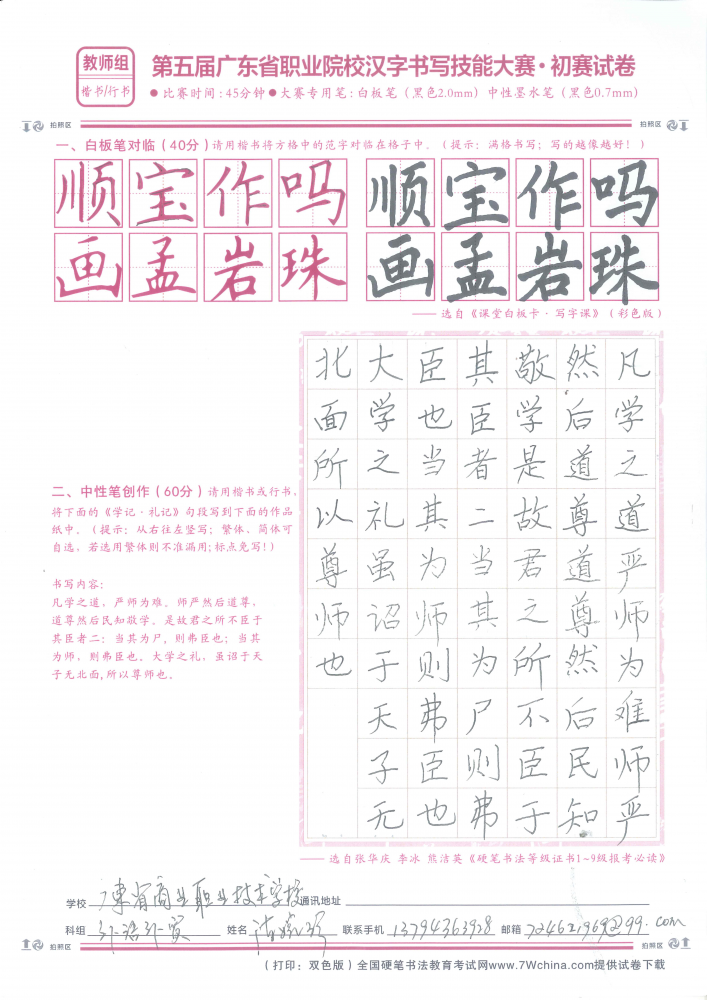 教师组
楷书/行书
第五届广东省职业院校汉字书写技能大赛·初赛试卷
●比赛时间:45分钟●大赛专用笔:白板笔(黑色2.0mm) 中性墨水笔(黑色0.7mm)
拍照区
拍照区
一、白板笔对临(40分)请用楷书将方格中的范字对临在格子中。(提示:满格书写;写的越像越好!)
顺宝作吗
顺宝作吗
画孟岩珠
画孟岩珠
——选自《课堂白板卡·写字课》(彩色版)
凡学之道严师为难师严
然后道尊道尊然后民知
敬学是故君之所不臣于
其臣者二当其为尸则弗
臣也当其为师则弗臣也
大学之礼虽诏于天子无
北面所以尊师也
二、中性笔创作(60分)请用楷书或行书,
将下面的《学记·礼记》句段写到下面的作品
纸中。(提示:从右往左竖写;繁体、简体可
自选,若选用繁体则不准漏用;标点免写!)
书写内容:
凡学之道,严师为难。师严然后道尊,
道尊然后民知敬学。是故君之所不臣于
其臣者二:当其为尸,则弗臣也;当其
为师,则弗臣也。大学之礼,虽诏于天
子无北面,所以尊师也。
——选自张华庆 李冰 熊洁英《硬笔书法等级证书1~9级报考必读》
学校 广东省商业职业技术学校 通讯地址
科组 外语外贸 姓名 联系手机 13794363928 邮箱
拍照区
拍照区
(打印:双色版)全国硬笔书法教育考试网www.7Wchina.com提供试卷下载